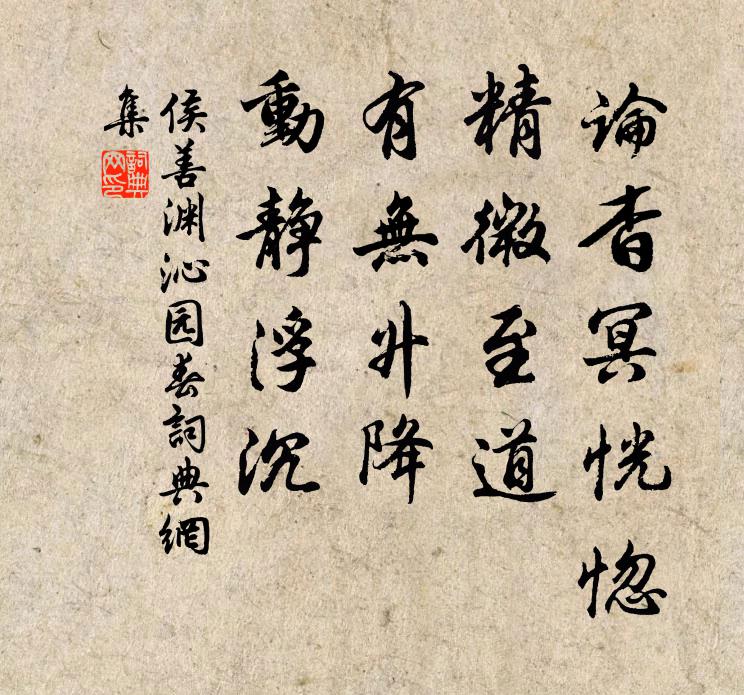 論杳冥恍惚
精微至道
有無升降
動静浮沉
侯善渊沁园春詞典網
集
詞典
网印